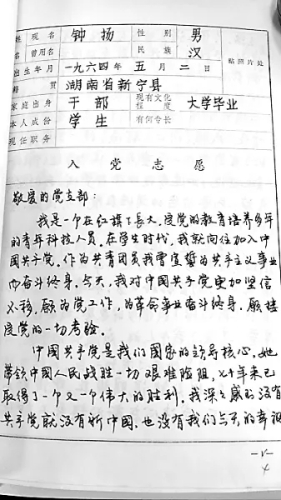 姓 现名 钟扬 性别 男
名 曾用名 民族 汉
出生年月 一九六四年 五月 二日 贴照片处
籍贯 湖南省新宁县
家庭出身 干部 现有文化程度 大学毕业
本人成份 学生 有何专长
现任职务
入党志愿
敬爱的党支部：
我是一个在红旗下长大，受党的教育培养多年
的青年科技人员，在学生时代，我就向往加入中
国共产党，作为共青团员我曾宣誓为共产主义事业
而奋斗终身。今天，我对中国共产党更加坚信
不移，愿为党工作，为革命事业奋斗终身，愿接
受党的一切考验。
中国共产党是我们国家的领导核心，她
带领中国人民战胜一切艰难险阻，七十年来已
取得了一个又一个伟大的胜利。我深深感到没有
共产党就没有新中国，也没有我们今天的幸福
—1—